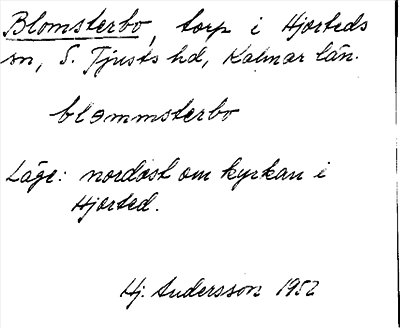 Blomsterbo, torp i Hjorteds
sn, S. Tjusts hd, Kalmar län.
blommsterbo
Läge: nordost om kyrkan i
Hjorted.
Hj. Andersson 1952